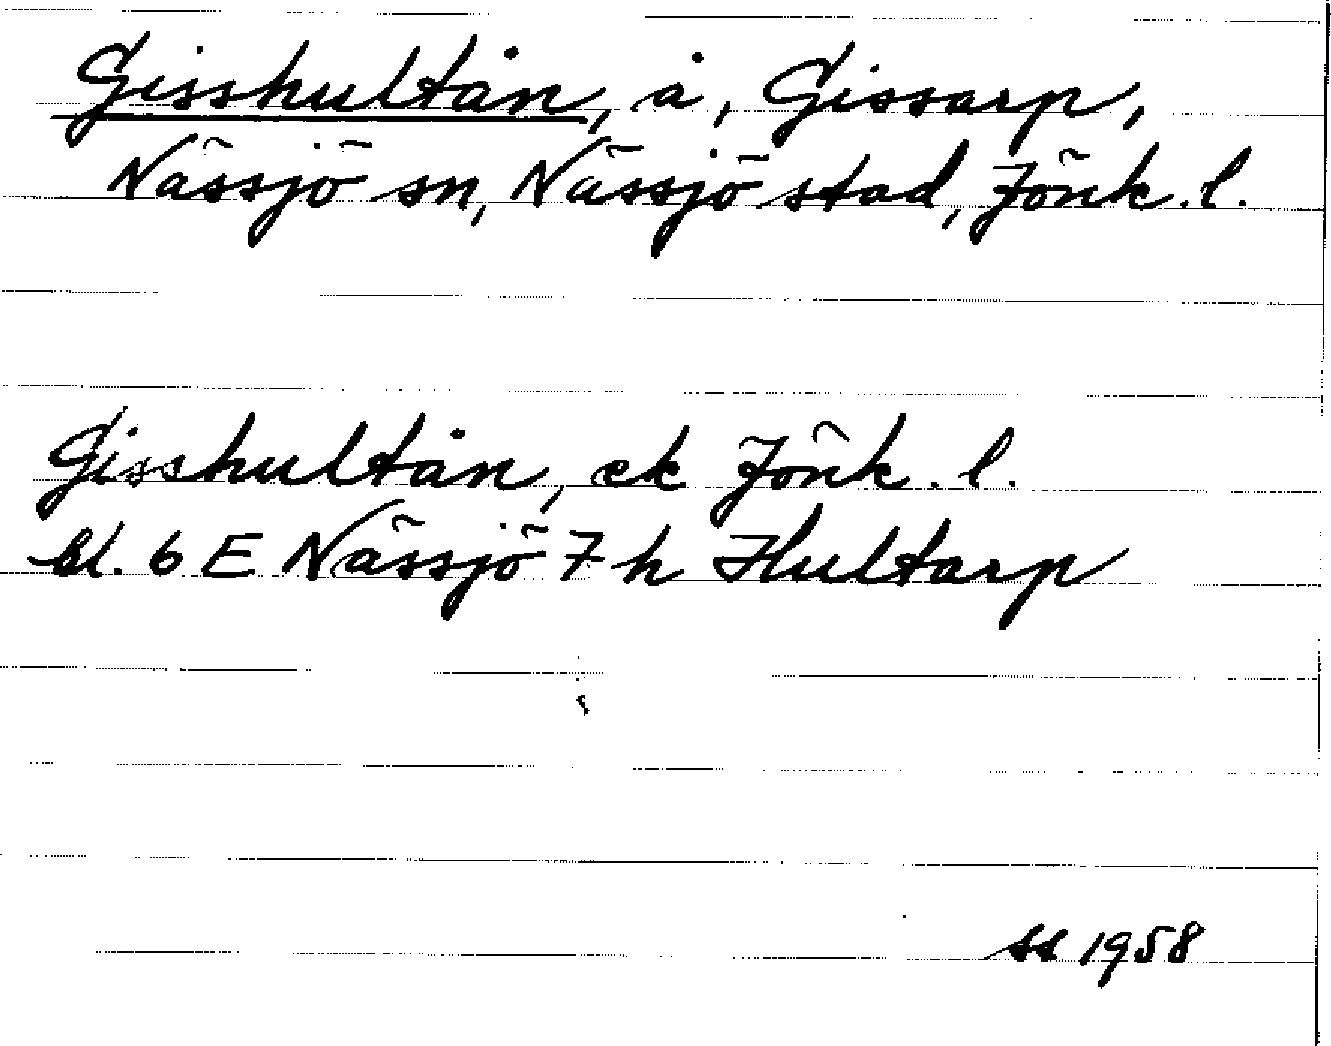 Gisshultån, å, Gissarp,
Nässjö sn, Nässjö stad, Jönk. l.
Gisshultån, ek Jönk. l.
bl. 6 E Nässjö 7 h Hultarp
ss 1958